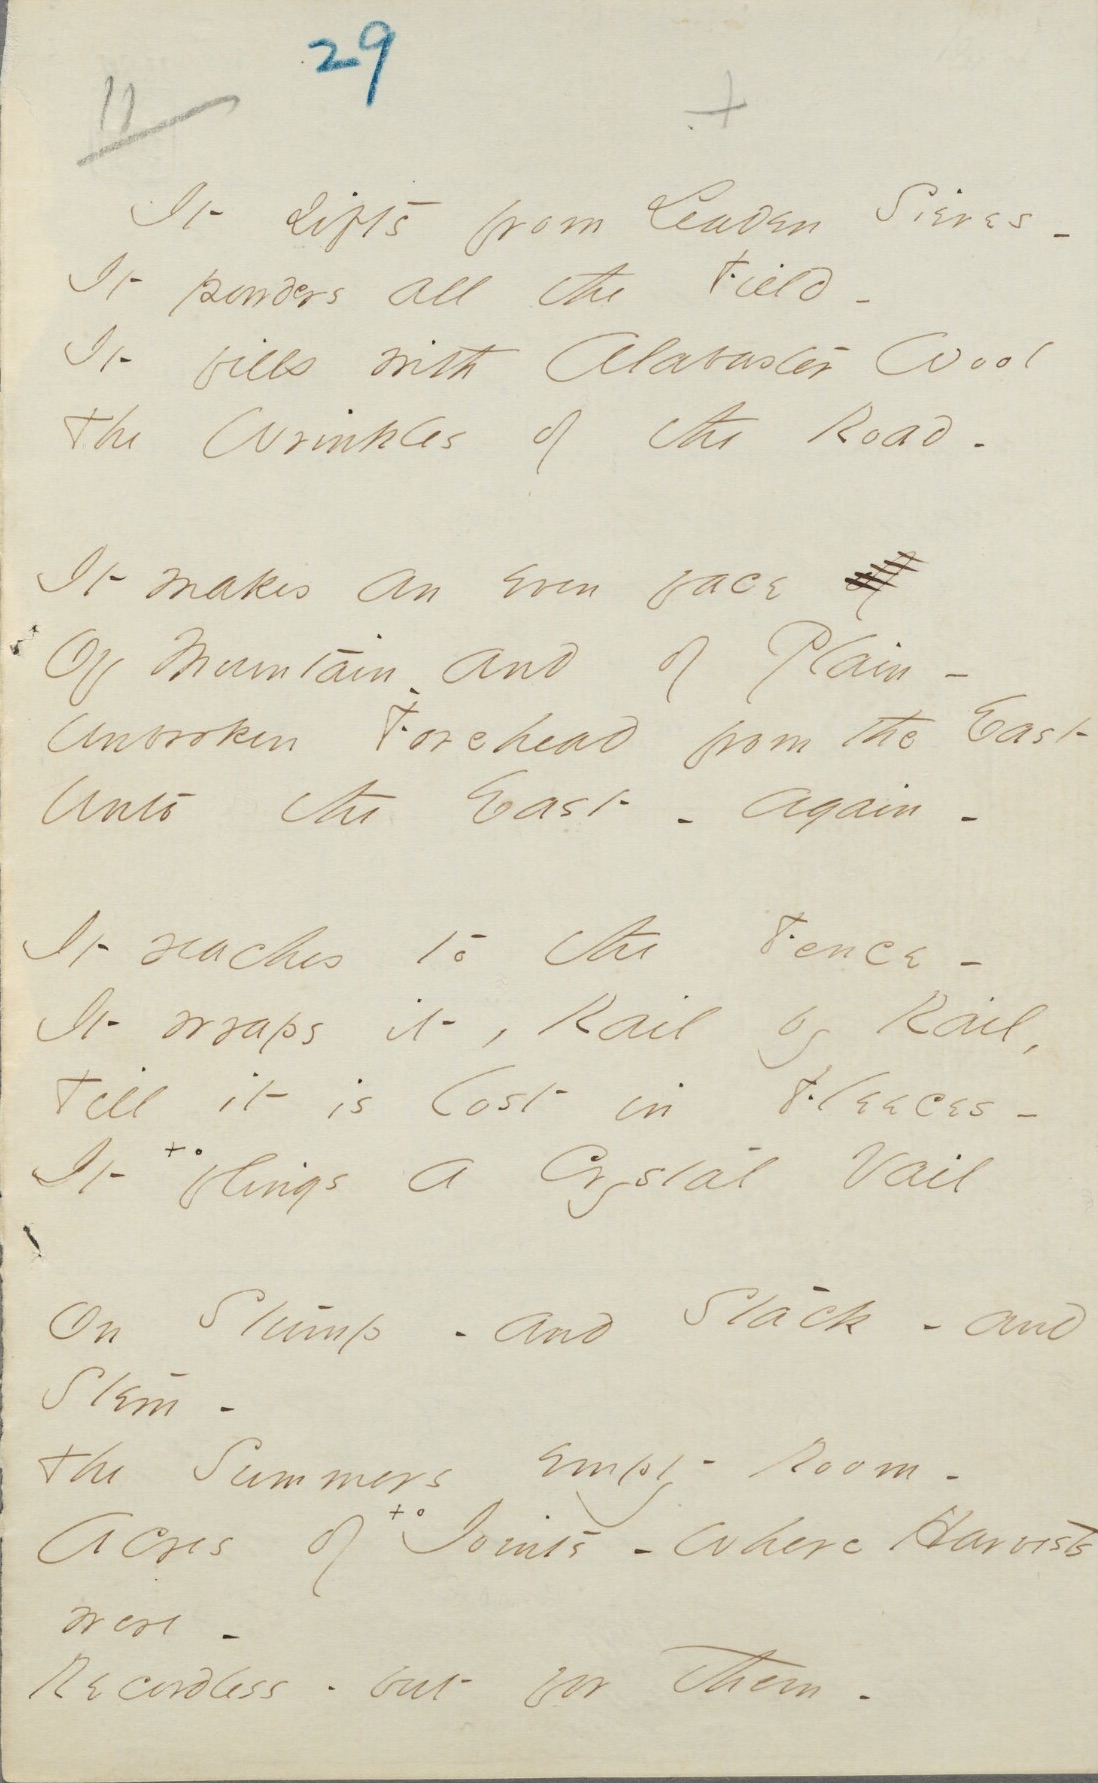 29
11
+
It sifts from Leaden Sieves -
It powders all the Field -
It fills with Alabaster Wool
The Wrinkles of the Road -
It makes an even face
Of Mountain - and of Plain -
Unbroken Forehead from the East
Unto the East - again -
It reaches to the Fence -
It wraps it, Rail by Rail,
Till it is lost in Fleeces -
It + flings a Crystal Vail
On Stump - and Stack - and
Stem -
The Summers empty Room -
Acres of + Joints - where Harvests
were -
Recordless - but for them -